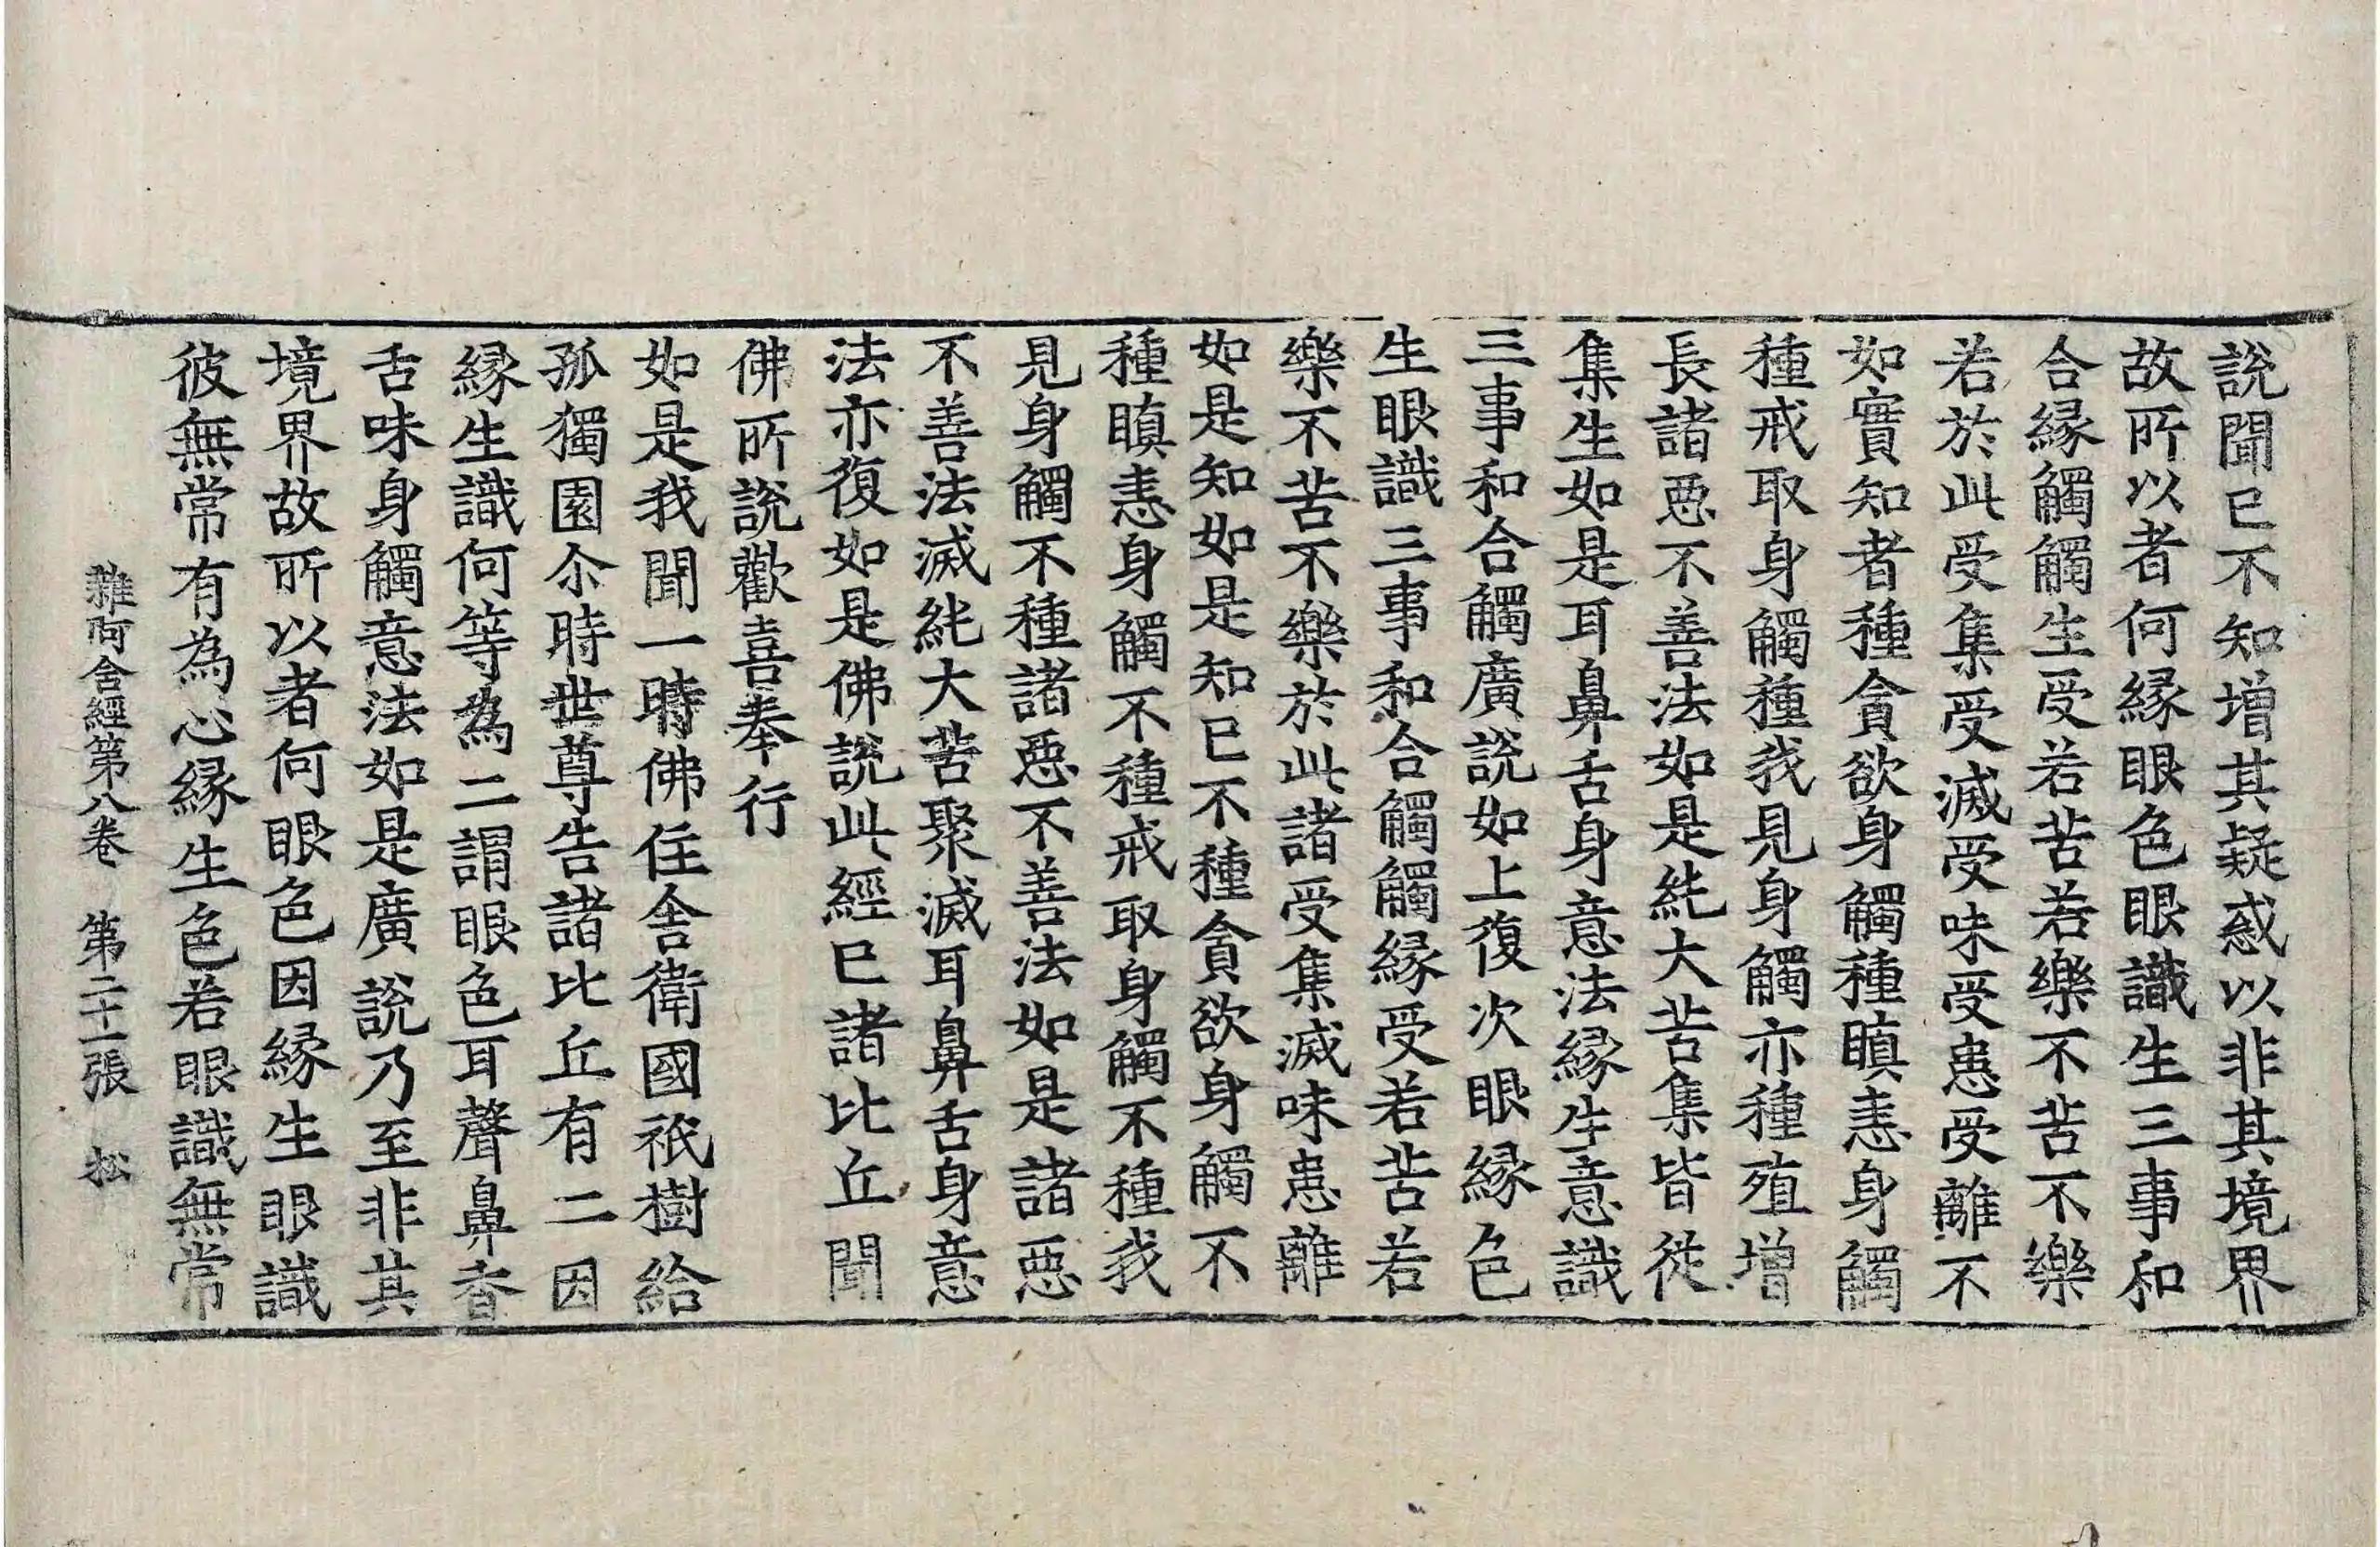 說聞已不知増其疑惑以非其境界
故所以者何縁眼色眼識生三事和
合縁觸觸生受若苦若樂不苦不樂
若於此受集受滅受味受患受離不
如實知者種貪欲身觸種瞋恚身觸
種戒取身觸種我見身觸亦種殖増
長諸惡不善法如是純大苦集皆從
集生如是耳鼻舌身意法縁生意識
三事和合觸廣說如上復次眼縁色
生眼識三事和合觸觸縁受若苦若
樂不苦不樂於此諸受集滅味患離
如是知如是知已不種貪欲身觸不
種瞋恚身觸不種戒取身觸不種我
見身觸不種諸惡不善法如是諸惡
不善法滅純大苦聚滅耳鼻舌身意
法亦復如是佛說此經已諸比丘聞
佛所說歡喜奉行
如是我聞一時佛住舍衛國祇樹給
孤獨園尒時世尊告諸比丘有二因
縁生識何等為二謂眼色耳聲鼻香
舌味身觸意法如是廣說乃至非其
境界故所以者何眼色因縁生眼識
彼無常有為心縁生色若眼識無常
雜阿含經第八卷　第二十一張　松